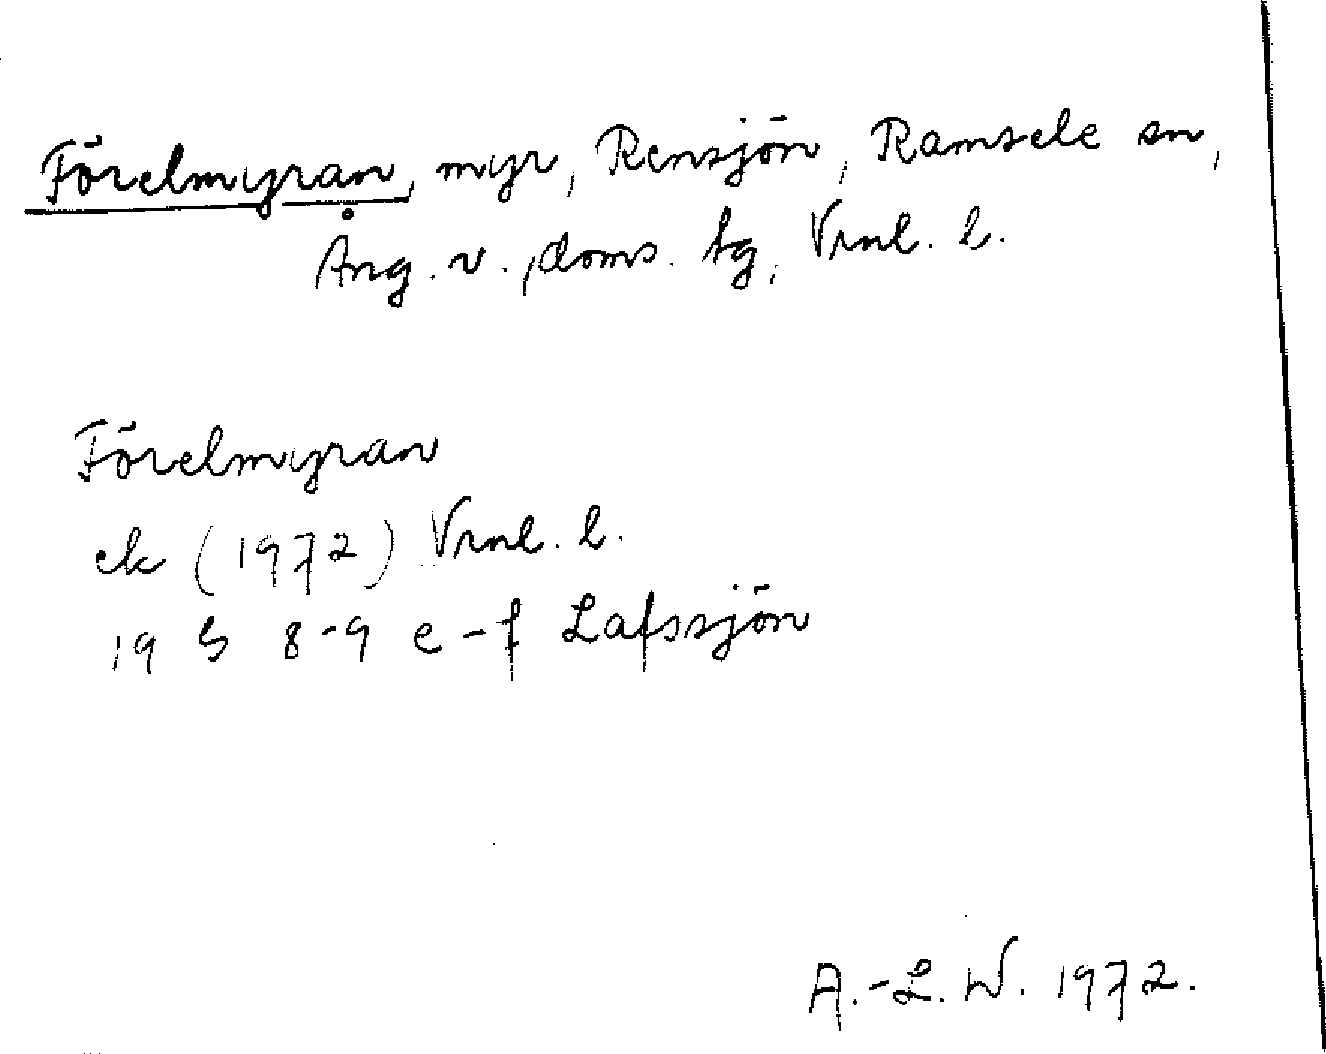 Förelmyran, myr, Rensjön, Ramsele sn,
Ång. v., doms. tg, Vrnl. l.
Förelmyran
ek (1972) Vrnl. l.
19 G 8-9 e-f Lafssjön
A.-L. W. 1972.